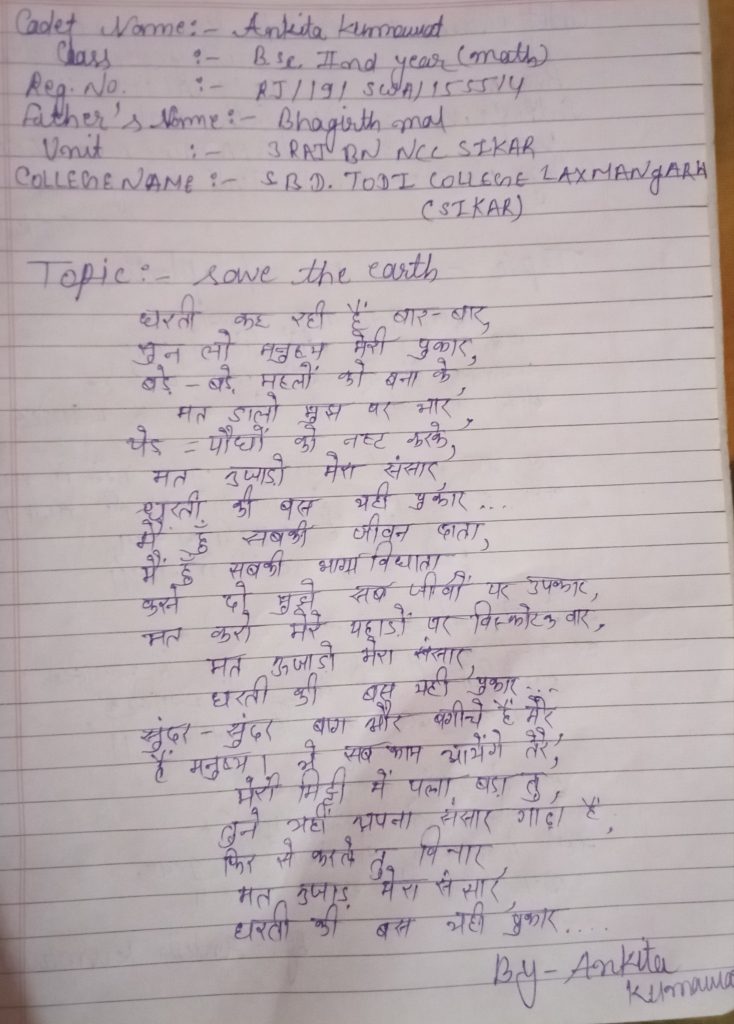 Cadet Name:- Ankita Kumawat
Class :- B.Sc IInd year (math)
Reg. No. :- RJ/19/SWA/155514
Father's Name:- Bhagirth mal
Unit :- 3 RAJ BN NCC SIKAR
COLLEGE NAME :- S.B.D. TODI COLLEGE LAXMANgARH
(SIKAR)
Topic:- save the earth
धरती कह रही हैं बार-बार,
सुन लो मनुष्य मेरी पुकार,
बड़े-बड़े महलों को बना के,
मत डालो मुझ पर भार,
पेड़ = पौधों को नष्ट करके,
मत उजाडो मेरा संसार,
धरती की बस यही पुकार...
मैं हूँ सबकी जीवन दाता,
मैं हूँ सबकी भाग्य विधाता
करने दो मुझे सब जीवों पर उपकार,
मत करो मेरे पहाडों पर विस्फोटक वार,
मत उजाडो मेरा संसार,
धरती की बस यही पुकार...
सुंदर-सुंदर बाग और बगीचे हैं मेरे
हैं मनुष्य। ये सब काम आयेंगे तेरे,
मेरी मिट्टी में पला बड़ा तु,
तुने यहीं अपना संसार गाढ़ा हैं,
फिर से करले तु विचार,
मत उजाड़ मेरा संसार,
धरती की बस यही पुकार....
By- Ankita
Kumawat